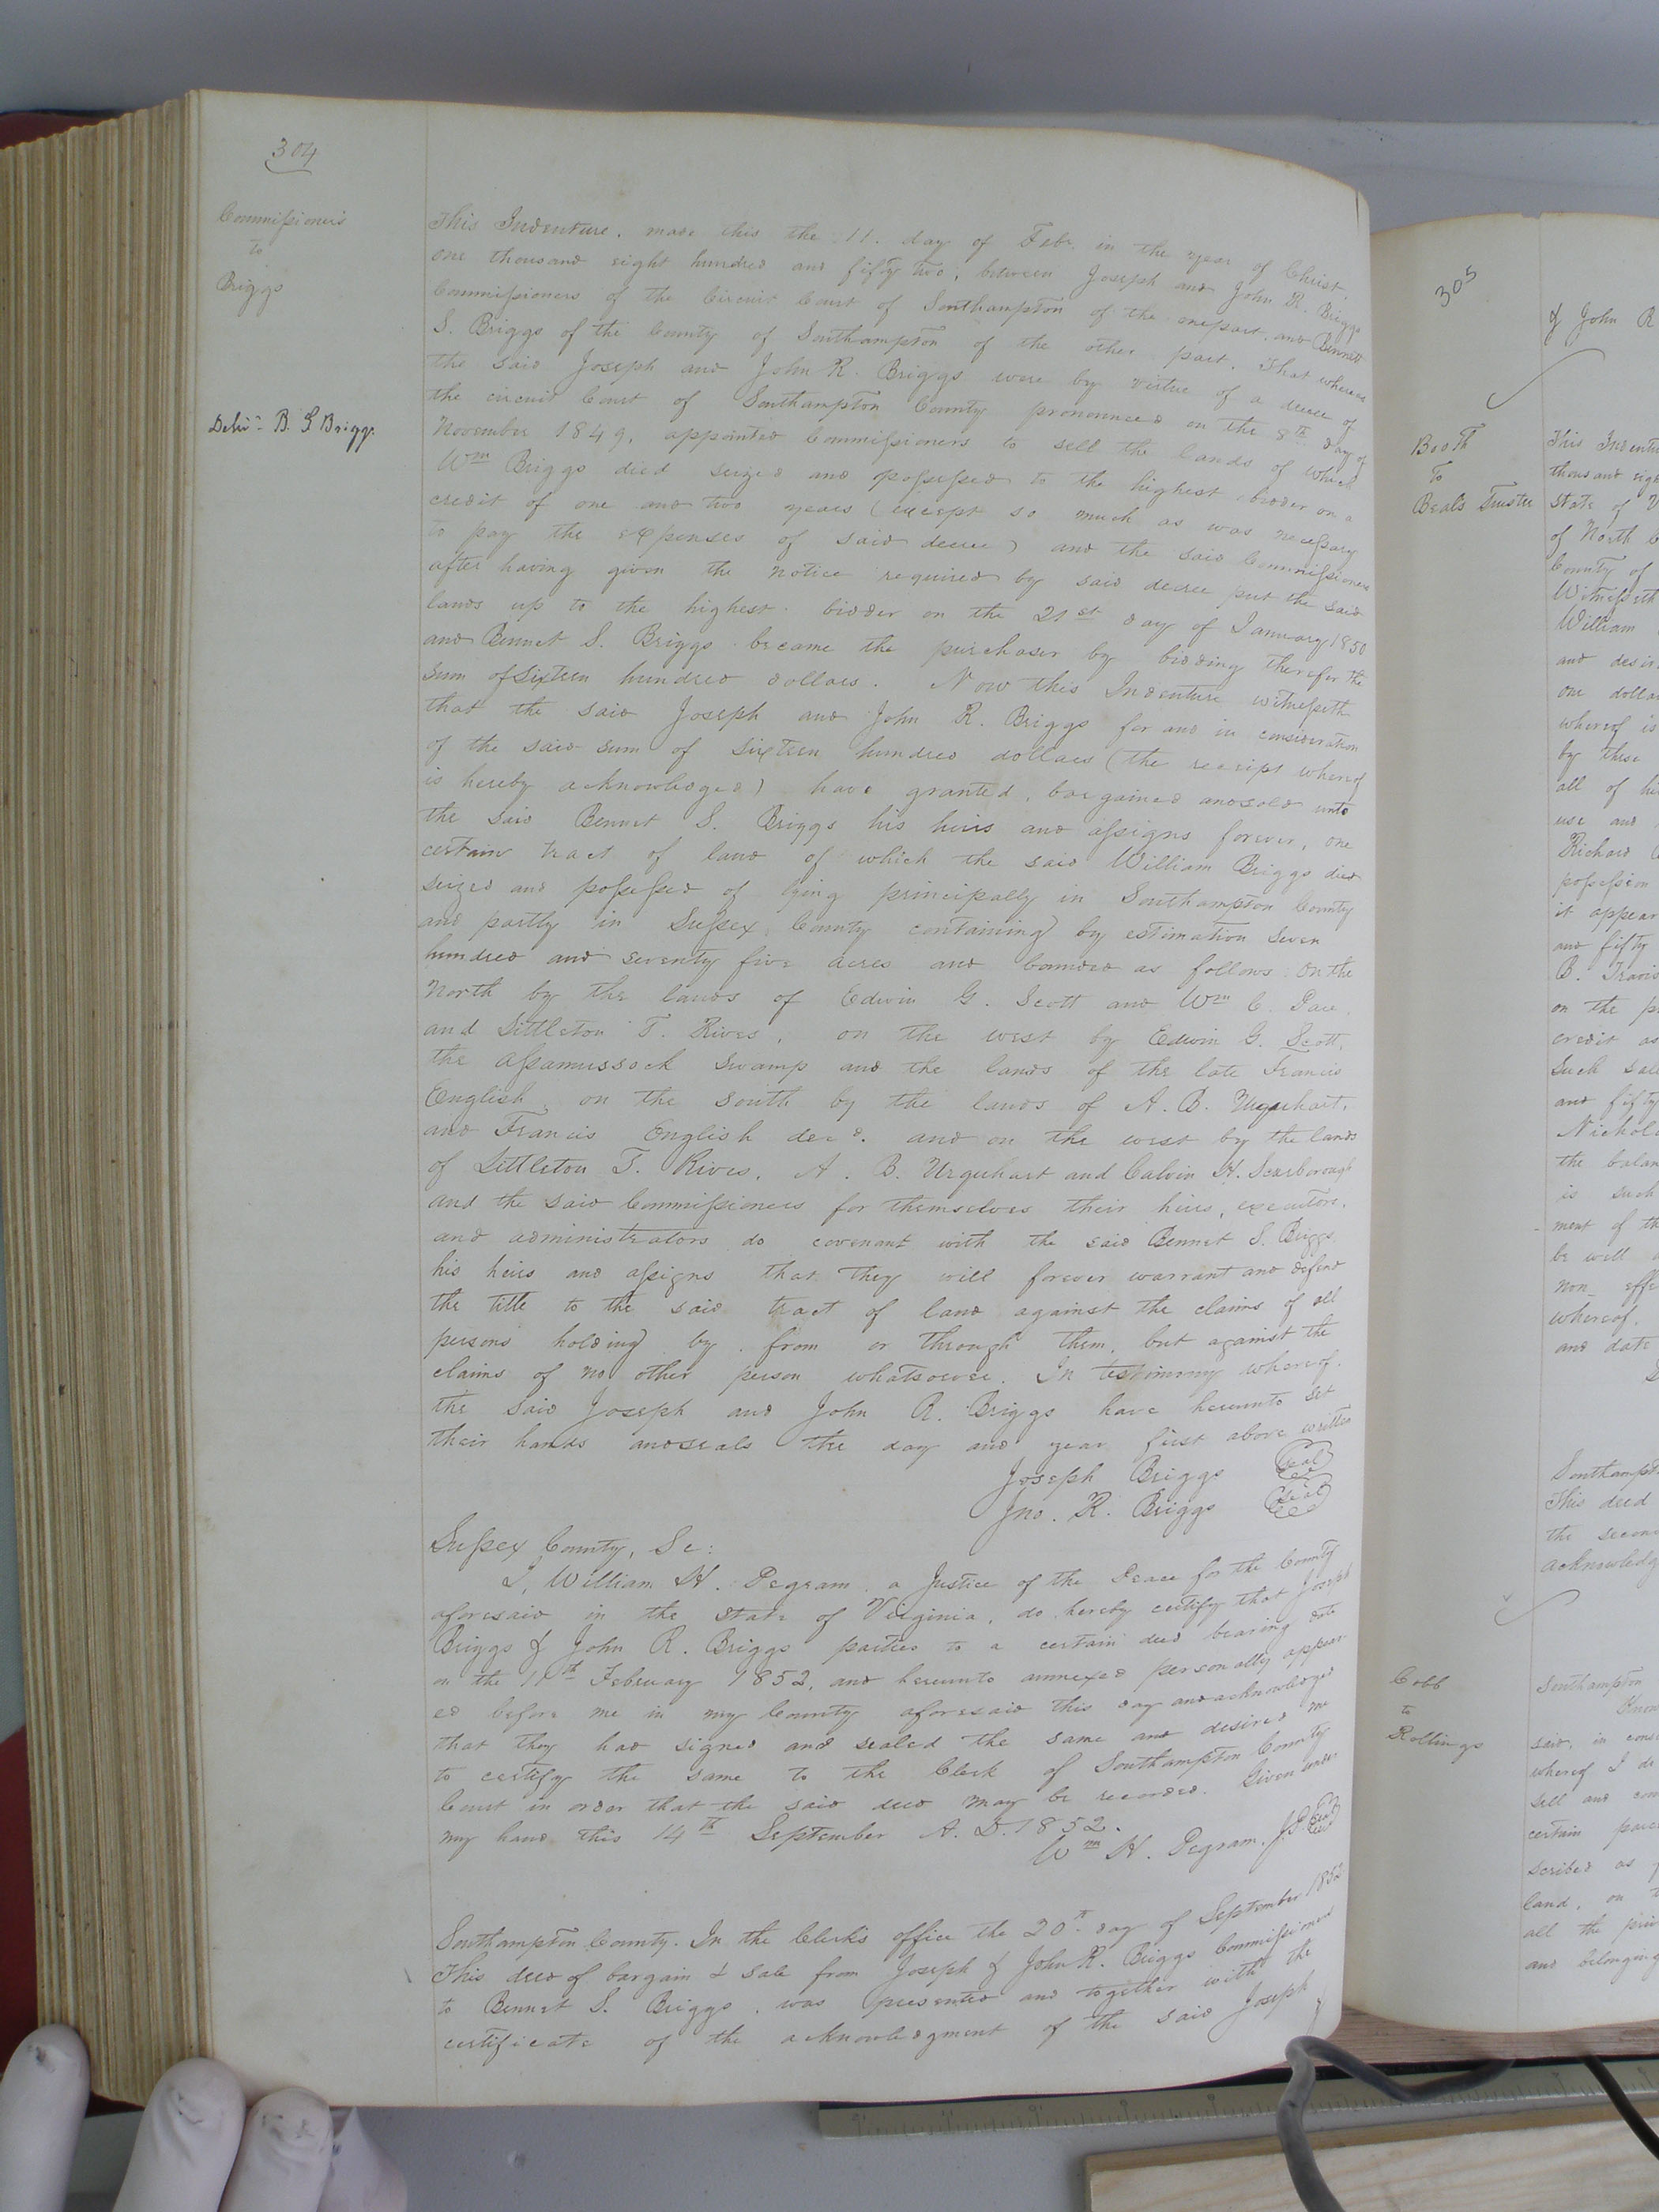 304
Commissioners
to
Briggs
Deliv.d B. S Briggs
This Indenture, made this the 11. day of Feb. in the year of Christ,
one thousand eight hundred and fifty two, between Joseph and John R. Briggs
Commissioners of the Circuit Court of Southampton of the one part, and Bennett
S. Briggs of the County of Southampton of the other part. That whereas
the said Joseph and John R. Briggs were by virtue of a decree of
the circuit Court of Southampton County pronounced on the 8th day of
November 1849, appointed Commissioners to sell the lands of which
Wm Briggs died seized and possessed to the highest bidder on a
credit of one and two years (except so much as was necessary
to pay the expenses of said decree) and the said Commissioners
after having given the notice required by said decree put the said
lands up to the highest bidder on the 21st day of January 1850
and Bennet S. Briggs became the purchaser by bidding therefor the
sum of Sixteen hundred dollars. Now this Indenture witnesseth
that the said Joseph and John R. Briggs for and in consideration
of the said sum of Sixteen hundred dollars (the receipt whereof
is hereby acknowledged) have granted, bargained and sold unto
the said Bennet S. Briggs his heirs and assigns forever, one
certain tract of land of which the said William Briggs died
seized and possessed of lying principally in Southampton County
and partly in Sussex County containing by estimation seven
hundred and seventy five acres and bounded as follows: On the
North by the lands of Edwin G. Scott and Wm C.
and Littleton T. Rives, on the west by Edwin G. Scott,
the Assamussock Swamp and the lands of the late Francis
English, on the south by the lands of A. B. Urquhart,
and Francis English decd. and on the west by the lands
of Littleton T. Rives, A. B. Urquhart and Calvin H. Scarborough
and the said Commissioners for themselves their heirs, executors,
and administrators do covenant with the said Bennet S. Briggs,
his heirs and assigns that they will forever warrant and defend
the title to the said tract of land against the claims of all
persons holding by, from or through them, but against the
claims of no other person whatsoever. In testimony whereof,
the said Joseph and John R. Briggs have hereunto set
their hands and seals the day and year first above written
Joseph Briggs Seal
Jno. R. Briggs Seal
Sussex County, Sc:
I, William H. Pegram, a Justice of the Peace for the County
aforesaid in the State of Virginia, do hereby certify that Joseph
Briggs & John R. Briggs parties to a certain deed bearing date
on the 11th February 1852, and hereunto annexed personally appear-
ed before me in my County aforesaid this day and acknowledged
that they had signed and sealed the same and desired me
to certify the same to the Clerk of Southampton County
Court in order that the said deed may be recorded. Given under
my hand this 14th September A.D. 1852.
Wm H. Pegram, J.P. Seal
Southampton County. In the Clerk's office the 20th day of September 1852
This deed of bargain & sale from Joseph & John R. Briggs Commissioners
to Bennet S. Briggs, was presented and together with the
certificate of the acknowledgment of the said Joseph
305
& John R
Booth
To
Beal's Trustee
This Indentu
thousand eig
State of V
of North C
County of
Witnesseth
William
and desir
one dolla
whereof is
by these
all of hi
use and
Richard
possession
it appear
and fifty
B. Travis
on the p
credit as
such sale
and fifty
Nichol
the balan
is such
ment of th
be well
non effe
whereof,
and date
Southampt
This deed
the secon
acknowledg
Cobb
to
Rollings
Southampton
Know
said, in cons
whereof I do
sell and con
certain parc
scribed as
land, on
all the pri
and belonging